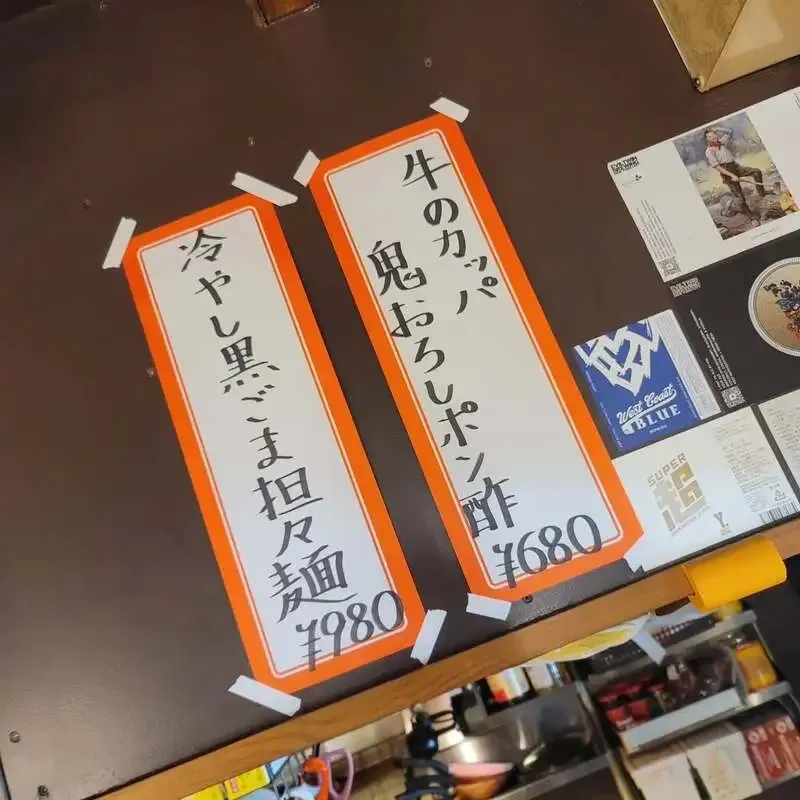 牛のカッパ
鬼おろしポン酢
¥680
冷やし黒ごま担々麺
¥980
EVIL TWIN
BREWING
West Coast
BLUE
SUPER
超